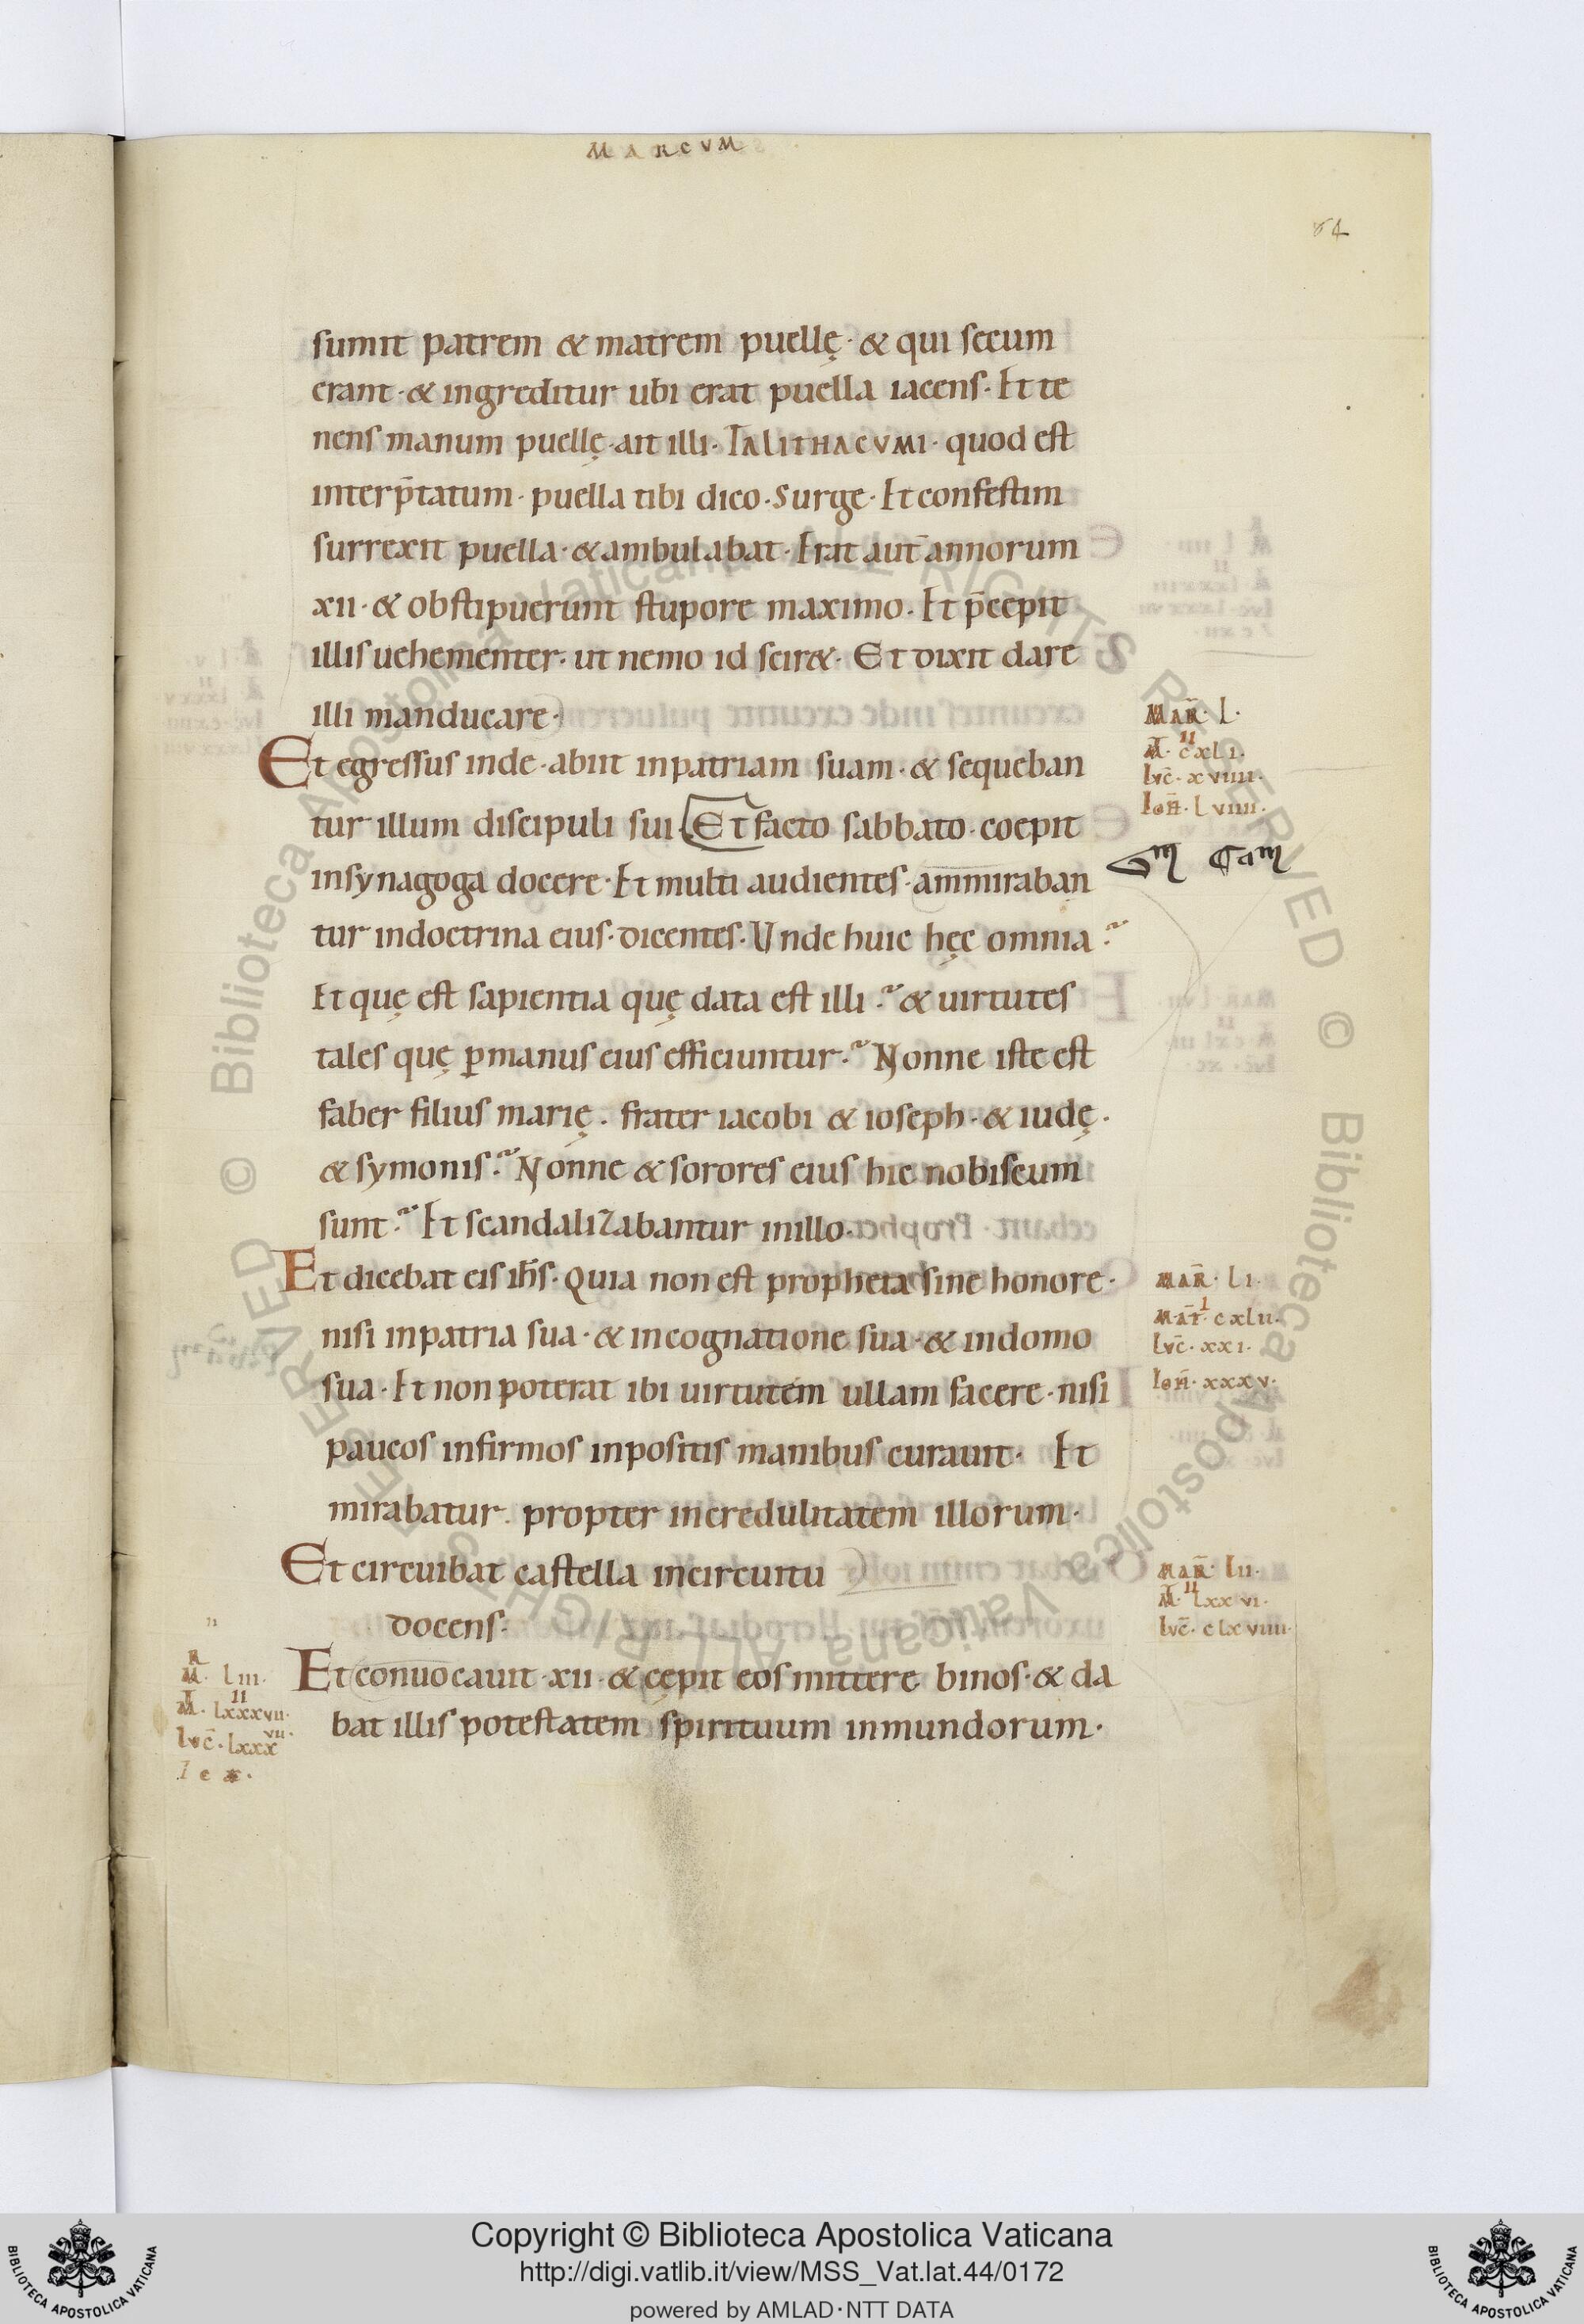 MARCVM
64
sumit patrem & matrem puellę· & qui secum
erant·& ingreditur ubi erat puella iacens· Et te
nens manum puellę·ait illi· TALITHACVMI· quod est
interp̄tatum· puella tibi dico·Surge· Et confestim
surrexit puella·&ambulabat·Erat aut̄ annorum
xii·& obstipuerunt stupore maximo· Et p̄cepit
illis uehementer· ut nemo id scir&· Et dixit dare
illi manducare·
MAR̄· L·
Et egressus inde·abiit inpatriam suam·& sequeban
M̄· CXLI·
II
LVC̄·XVIIII·
tur illum discipuli sui· Et facto sabbato·coepit
IOH̄·LVIIII·
insynagoga docere·Et multi audientes·ammiraban
tur indoctrina eius·dicentes·Unde huic hęc omnia?
Et quę est sapientia quę data est illi? & uirtutes
tales quę ꝑmanus eius efficiuntur? Nonne iste est
faber filius marię· frater iacobi & ioseph·& iudę·
& symonis? Nonne & sorores eius hic nobiscum
sunt? Et scandalizabantur inillo·
Et dicebat eis ih̄s·Quia non est propheta sine honore·
MAR̄· LI·
nisi inpatria sua·& incognatione sua·& indomo
MAT̄· CXLII·
I
LVC̄·XXI·
sua·Et non poterat ibi uirtutem ullam facere·nisi
IOH̄·XXXV·
paucos infirmos inpositis manibus curauit· Et
mirabatur· propter incredulitatem illorum·
Et circuibat castella incircuitu
MAR̄· LII·
M̄· LXXVI·
II
docens·
LVC̄·CLXVIIII·
Et conuocauit·xii·& cępit eos mittere binos·& da
R
M· LIII·
M̄· LXXXVII·
II
bat illis potestatem spirituum inmundorum·
LVC̄·LXXX
VII·
Copyright © Biblioteca Apostolica Vaticana
http://digi.vatlib.it/view/MSS_Vat.lat.44/0172
powered by AMLAD·NTT DATA
BIBLIOTECA APOSTOLICA VATICANA
BIBLIOTECA APOSTOLICA VATICANA
© Biblioteca Apostolica Vaticana ALL RIGHTS RESERVED
© Biblioteca Apostolica Vaticana ALL RIGHTS RESERVED